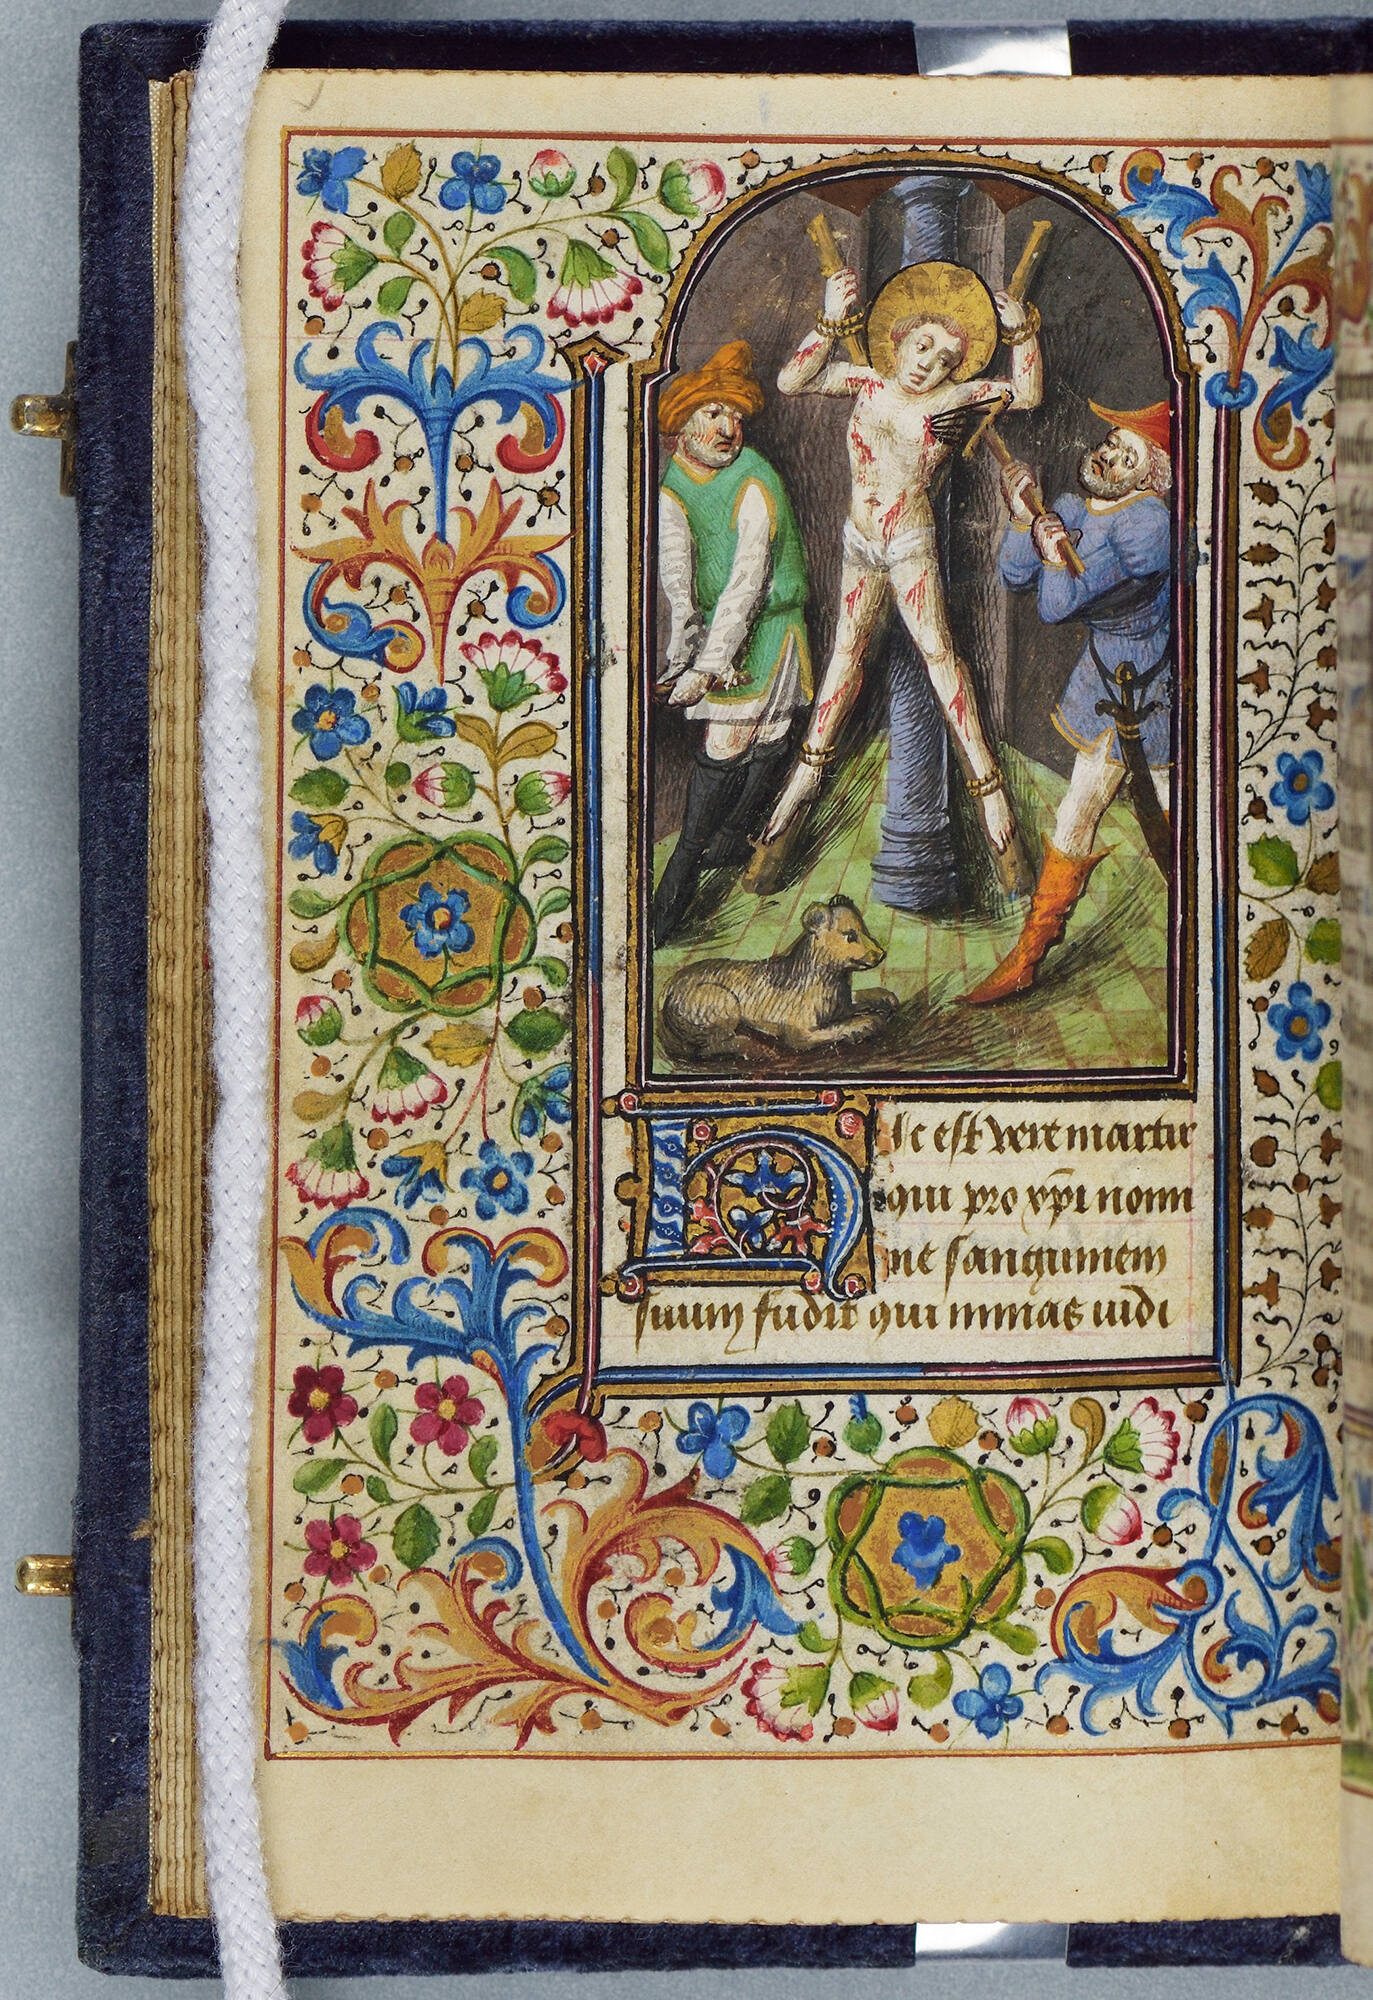 Hic est vere martir
qui pro xp̄i nomi
ne sanguinem
suum fudit qui minas iudi